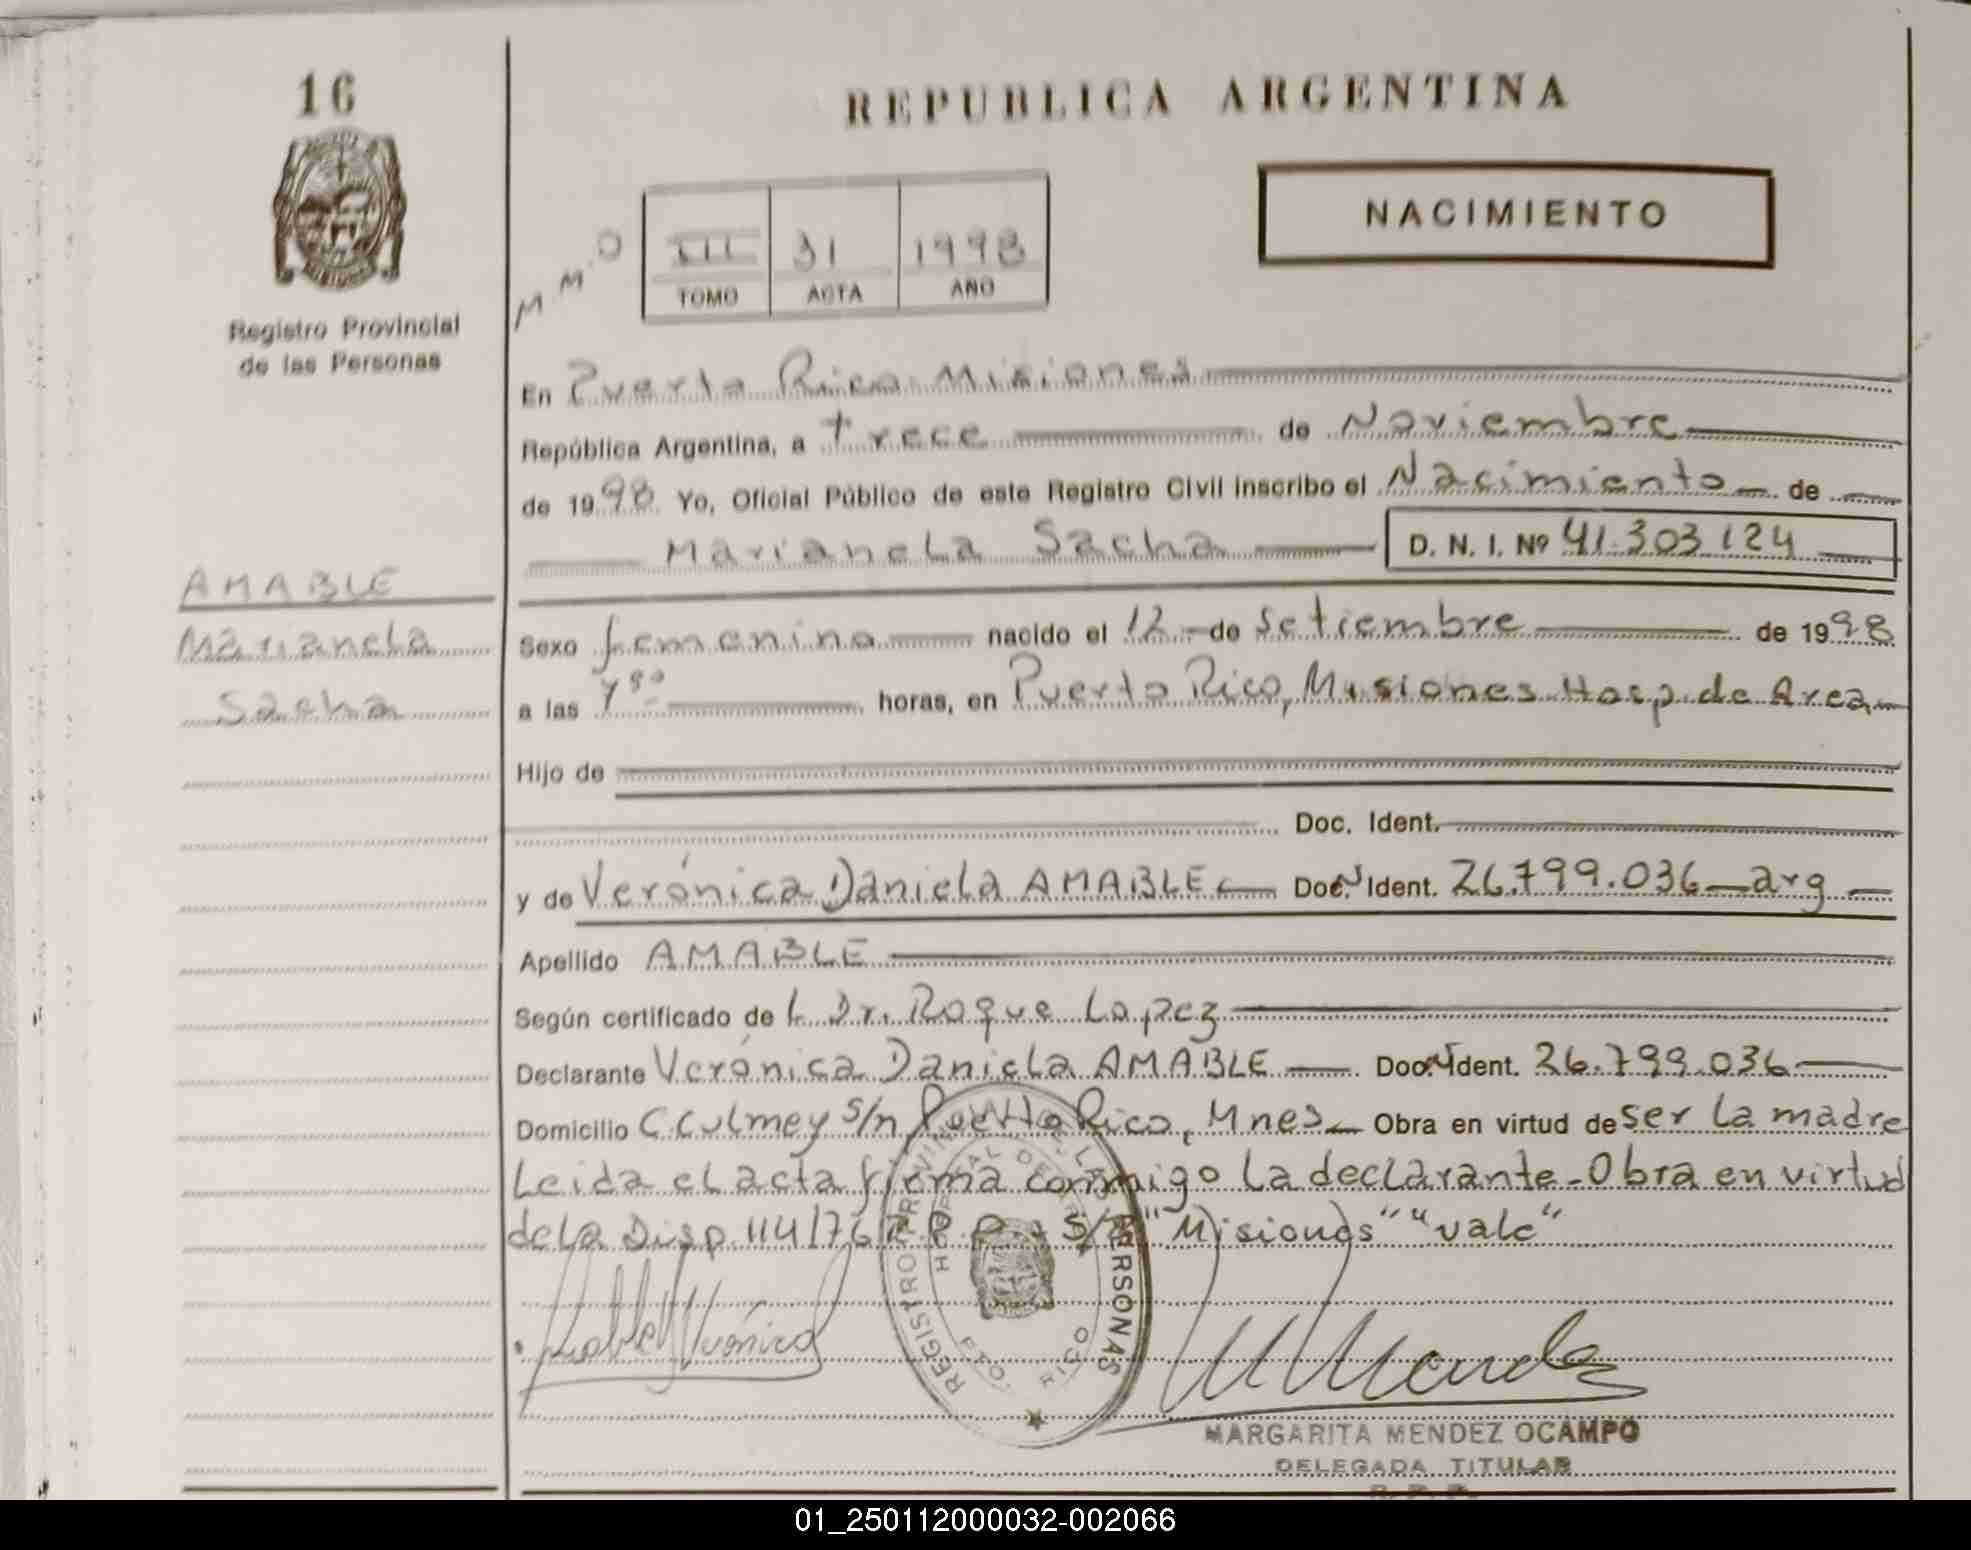 16
REPUBLICA ARGENTINA
NACIMIENTO
M M O
III 31 1998
TOMO ACTA AÑO
Registro Provincial
de las Personas
En Puerto Rico Misiones
República Argentina, a trece de Noviembre
de 1998 Yo, Oficial Público de este Registro Civil inscribo el Nacimiento de
Marianela Sacha D. N. I. Nº 41.303.124
AMABLE
Marianela
Sacha
Sexo femenino nacido el 12 de Setiembre de 1998
a las horas, en Puerto Rico, Misiones Hosp. de Area
Hijo de
Doc. Ident.
y de Verónica Daniela AMABLE Doc. N Ident. 26.799.036 arg
Apellido AMABLE
Según certificado de L Dr. Roque Lopez
Declarante Verónica Daniela AMABLE Doc. N Ident. 26.799.036
Domicilio C Culmey s/n Puerto Rico, Mnes Obra en virtud de ser la madre
Leida el acta firma conmigo la declarante - Obra en virtud
de la Disp. 114/76 R.P.P. - S/R "Misiones" "vale"
REGISTRO PROVINCIAL DE LAS PERSONAS
HOSPITAL DE AREA
PTO. RICO
Amable Verónica
M Mendez
MARGARITA MENDEZ OCAMPO
DELEGADA TITULAR
R. P. P.
01_250112000032-002066